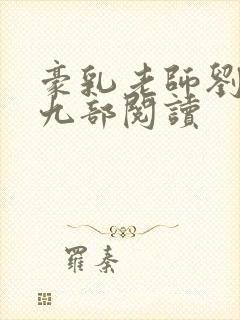 豪乳老師劉
九部閱讀
羅秦